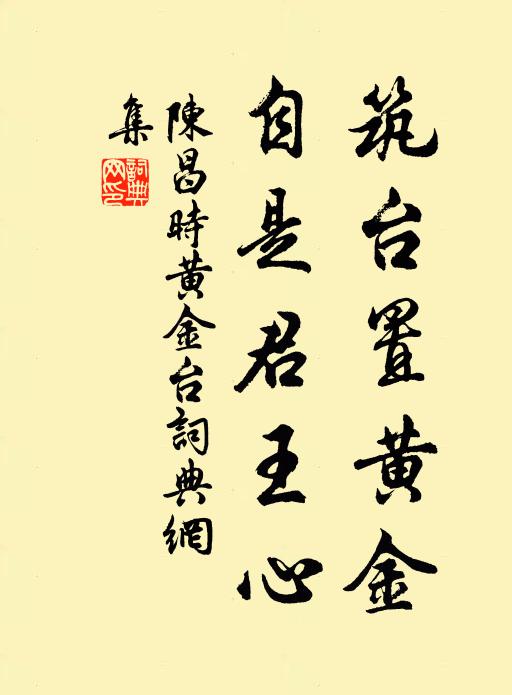 筑台置黄金
自是君王心
陳昌時黄金台詞典網
集
詞典
网印